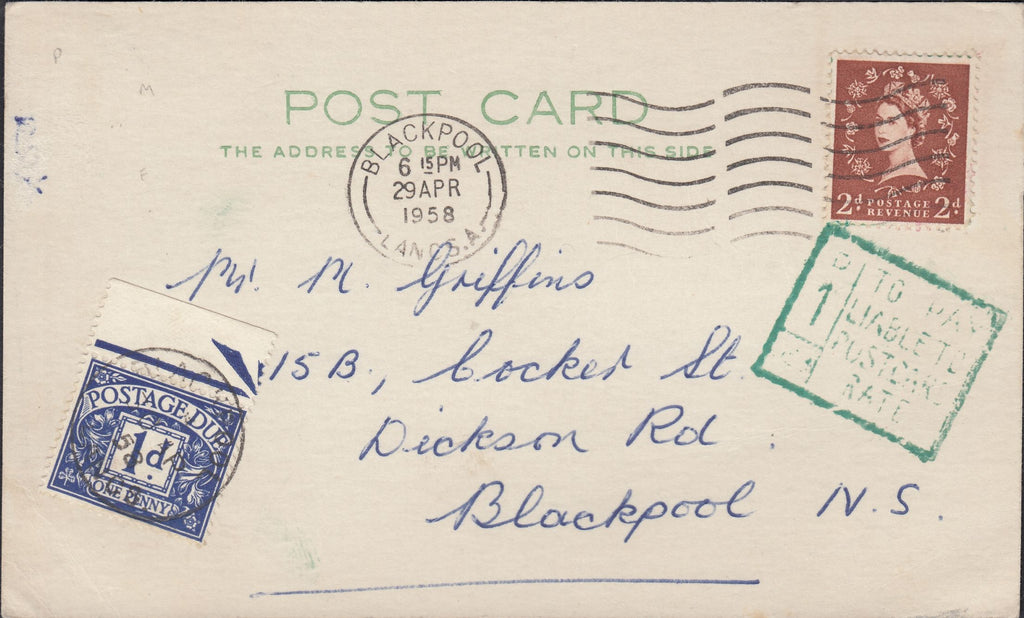 P
M
E
POST CARD
THE ADDRESS TO BE WRITTEN ON THIS SIDE
BLACKPOOL
6 15 PM
29 APR
1958
LANCS.A.
2d POSTAGE REVENUE 2d
Mr. M. Griffins
15B., Cocker St.
Dickson Rd.
Blackpool N.S.
D
1
TO PAY
LIABLE TO
POSTCARD
RATE
POSTAGE DUE
1d.
ONE PENNY